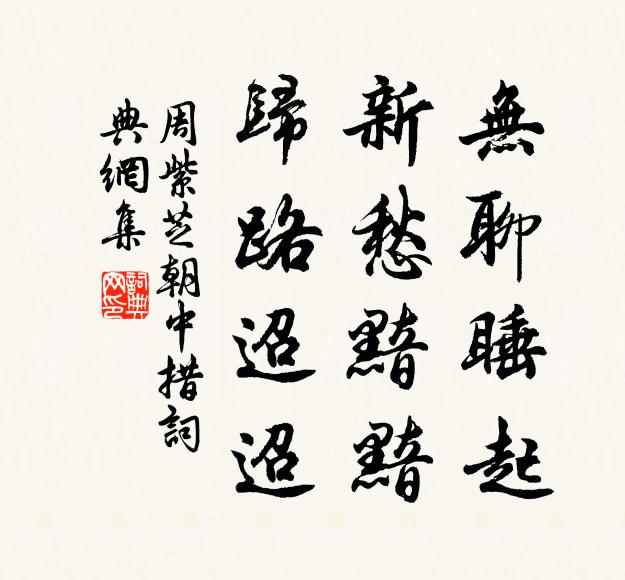 無聊睡起
新愁黯黯
歸路迢迢
周紫芝朝中措詞
典網集
詞典网印